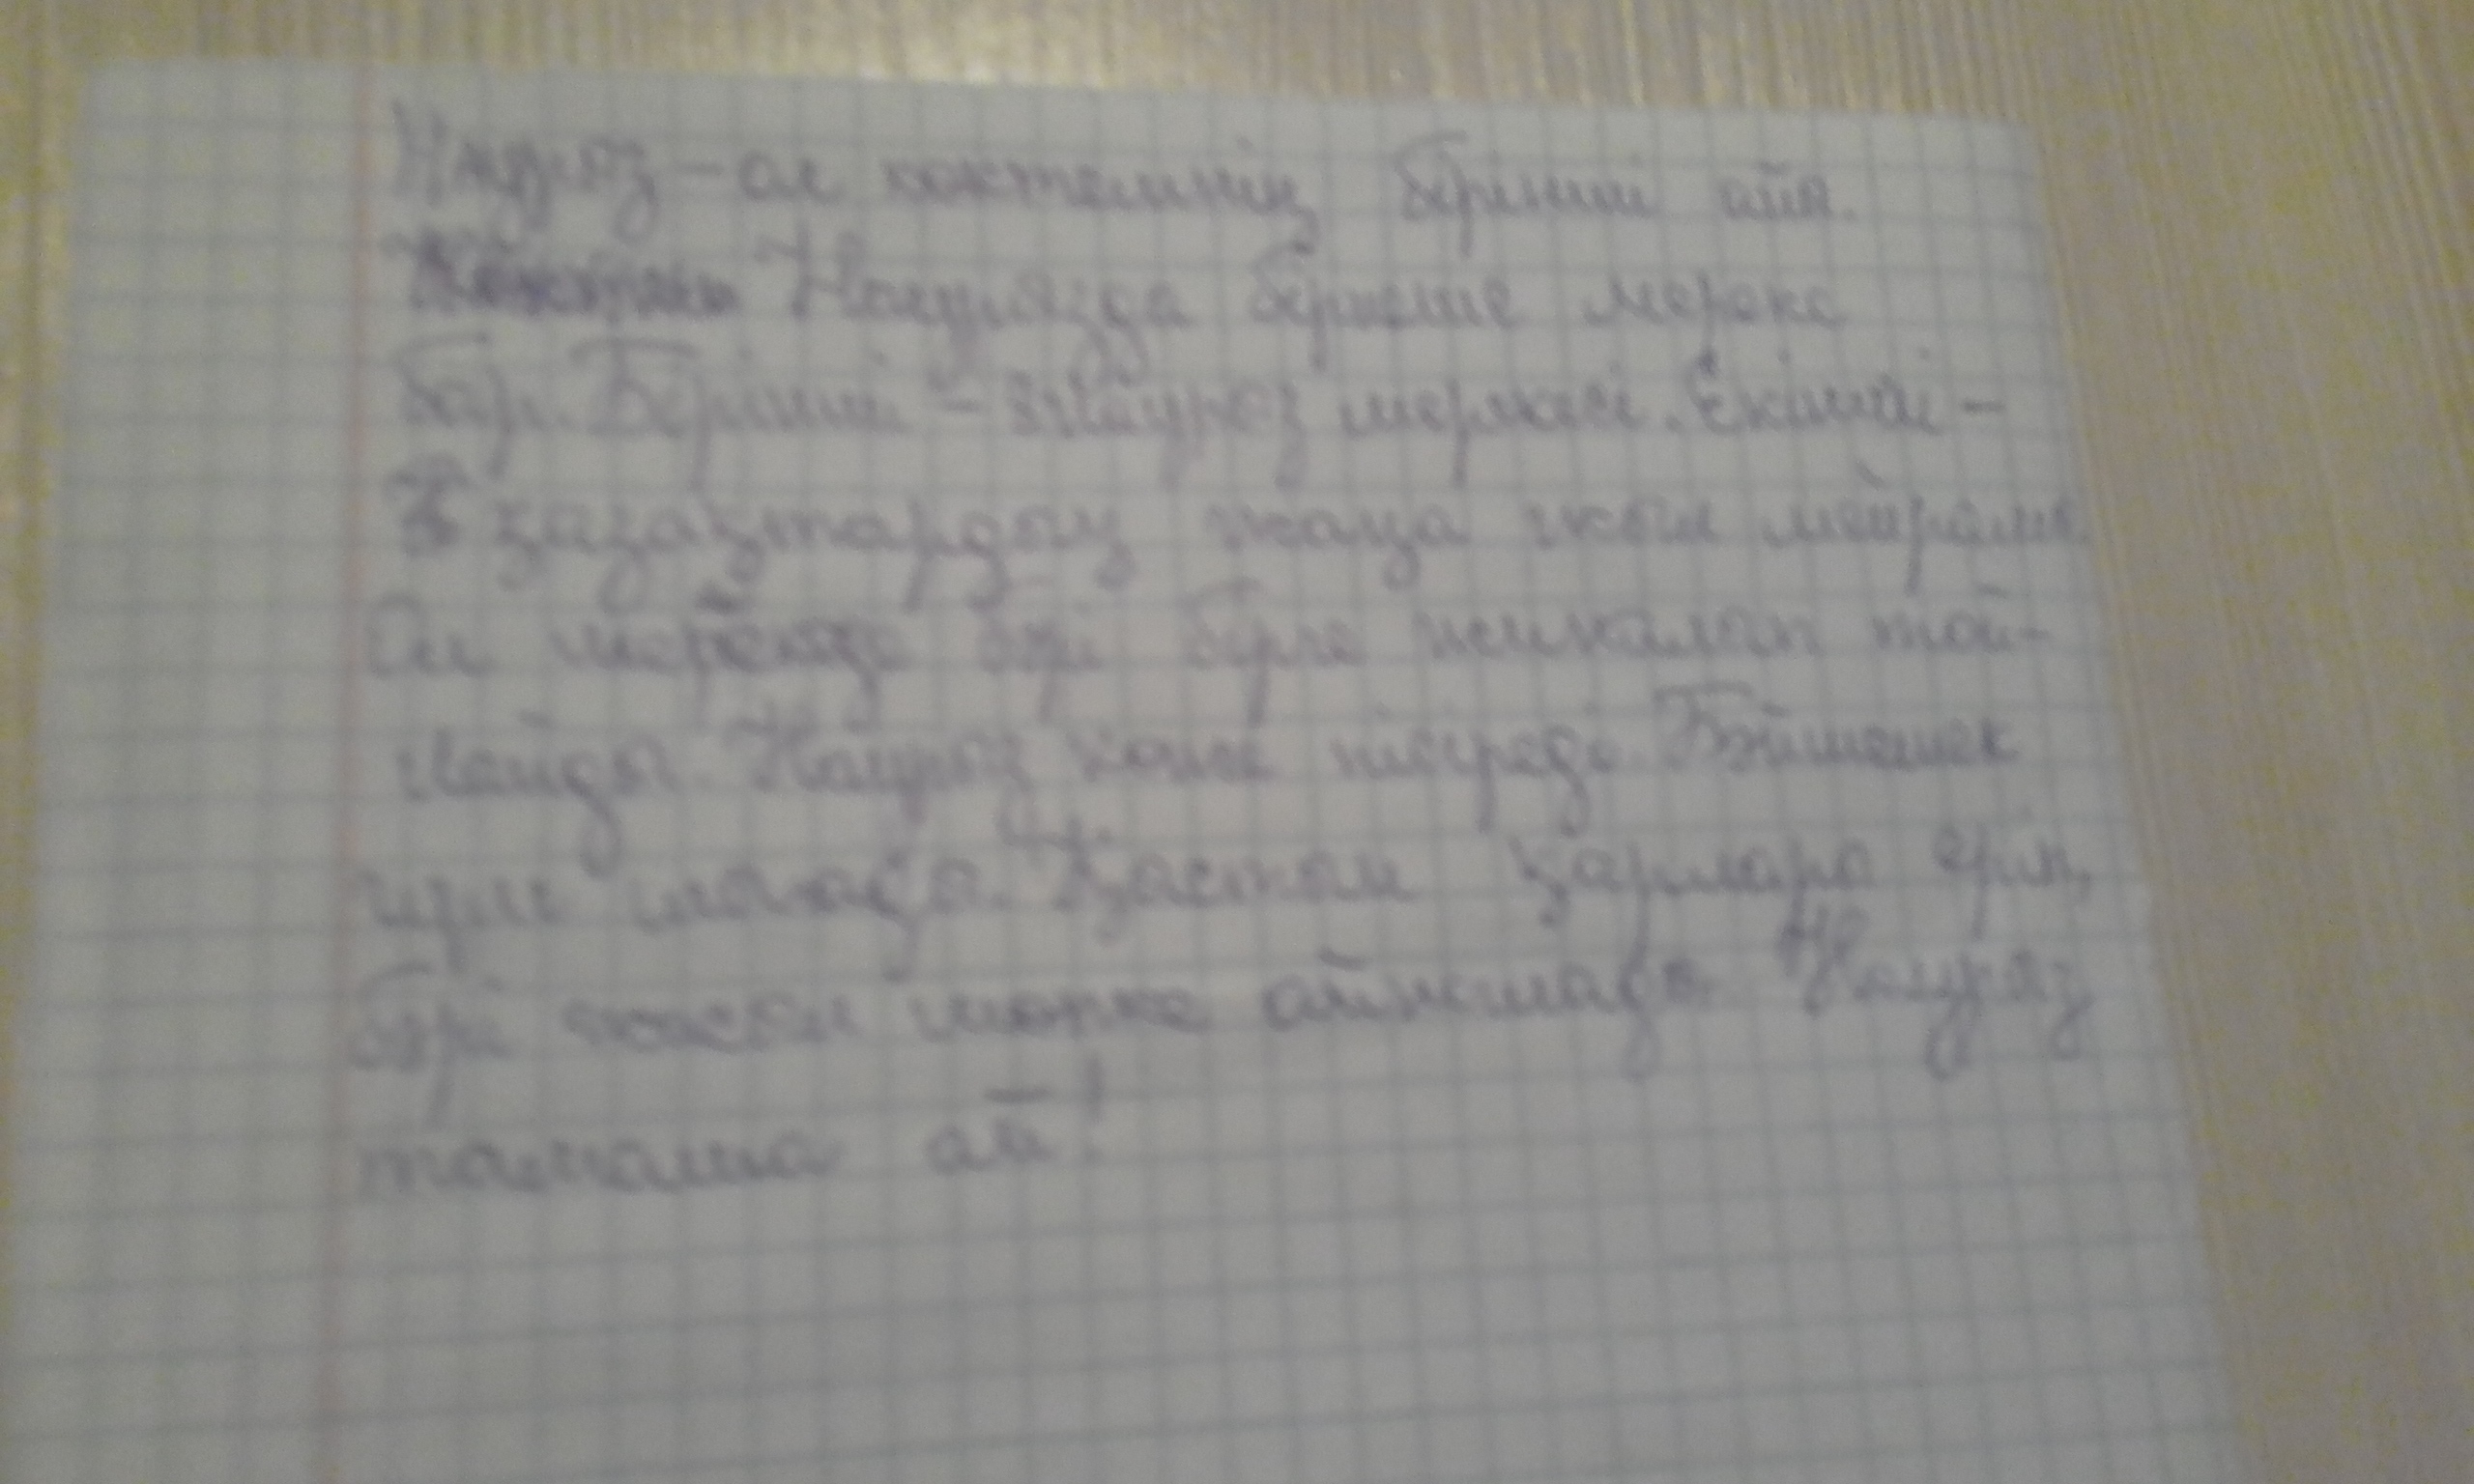 Наурыз – ол көктемнің бірінші айы.
Наурызда бірнеше мереке
бар. Бірінші – Наурыз мерекесі. Екінші –
қазақтардың жаңа жыл мейрамы.
Ол мерекеде бәрі бірге той-
лайды. Наурыз көже пісіреді. Бәйшешек
гүлі шығады. Қыстың қарлары еріп,
бәрі жасыл түрге айналады. Наурыз
тамаша ай!